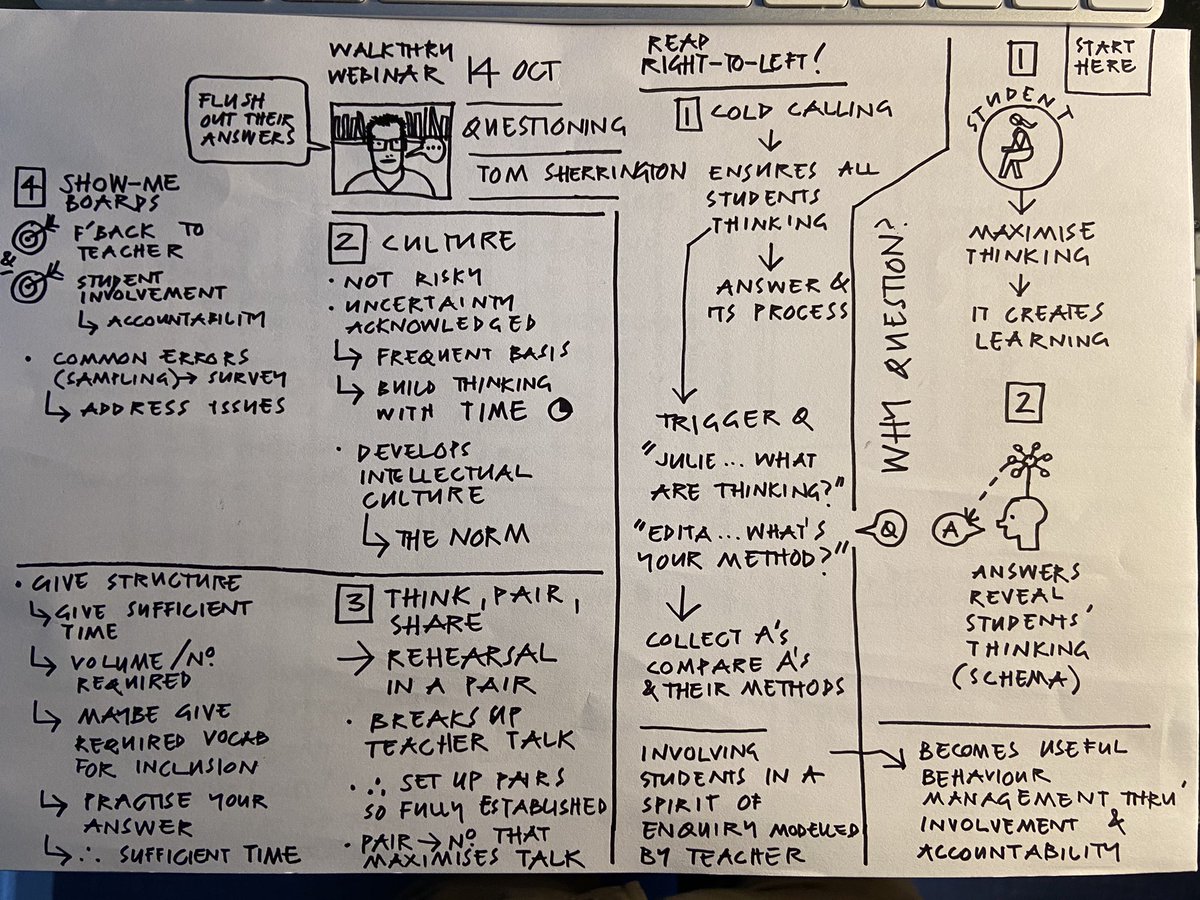 WALKTHRU
WEBINAR
14 OCT
QUESTIONING
TOM SHERRINGTON
FLUSH
OUT THEIR
ANSWERS
READ
RIGHT-TO-LEFT!
START
HERE
WHY QUESTION?
1
STUDENT
MAXIMISE
THINKING
IT CREATES
LEARNING
2
Q
A
ANSWERS
REVEAL
STUDENTS'
THINKING
(SCHEMA)
1 COLD CALLING
ENSURES ALL
STUDENTS
THINKING
ANSWER &
ITS PROCESS
TRIGGER Q
"JULIE... WHAT
ARE THINKING?"
"EDITA... WHAT'S
YOUR METHOD?"
COLLECT A'S,
COMPARE A'S
& THEIR METHODS
INVOLVING
STUDENTS IN A
SPIRIT OF
ENQUIRY MODELLED
BY TEACHER
→ BECOMES USEFUL
BEHAVIOUR
MANAGEMENT THRU'
INVOLVEMENT &
ACCOUNTABILITY
2 CULTURE
• NOT RISKY
• UNCERTAINTY
ACKNOWLEDGED
↳ FREQUENT BASIS
↳ BUILD THINKING
WITH TIME
• DEVELOPS
INTELLECTUAL
CULTURE
↳ THE NORM
3 THINK, PAIR,
SHARE
→ REHEARSAL
IN A PAIR
• BREAKS UP
TEACHER TALK
• ∴ SET UP PAIRS
SO FULLY ESTABLISHED
• PAIR → Nº THAT
MAXIMISES TALK
• GIVE STRUCTURE
↳ GIVE SUFFICIENT
TIME
↳ VOLUME/Nº
REQUIRED
↳ MAYBE GIVE
REQUIRED VOCAB
FOR INCLUSION
↳ PRACTISE YOUR
ANSWER
↳ ∴ SUFFICIENT TIME
4 SHOW-ME
BOARDS
F'BACK TO
TEACHER
&
STUDENT
INVOLVEMENT
↳ ACCOUNTABILITY
• COMMON ERRORS
(SAMPLING) → SURVEY
↳ ADDRESS ISSUES